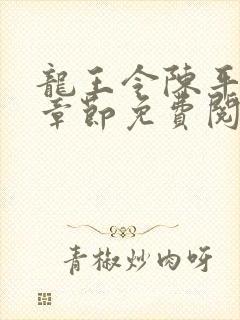 龍王令陳平
章節免費閱
青椒炒肉呀